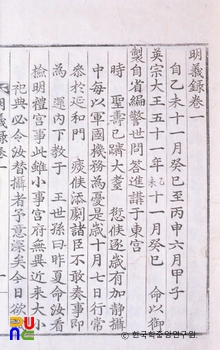 明義錄卷一
自乙未十一月癸巳至丙申六月甲子
英宗大王五十一年乙未十一月癸巳 命以御
製自省編警世問答進講于東宮
時 聖壽已躋大耋 愆候逐歲有加靜攝
中每以軍國機務爲憂是歲十月七日行常
參於延和門 痰候添劇諸臣不敢奏事卽
爲 還內下敎于 王世孫曰昨夏命汝看
檢明禮宮事此雖小事宮府無異近來大小
祀典必令汝替攝者予意深矣今日欲
明義錄卷一
한국학중앙연구원